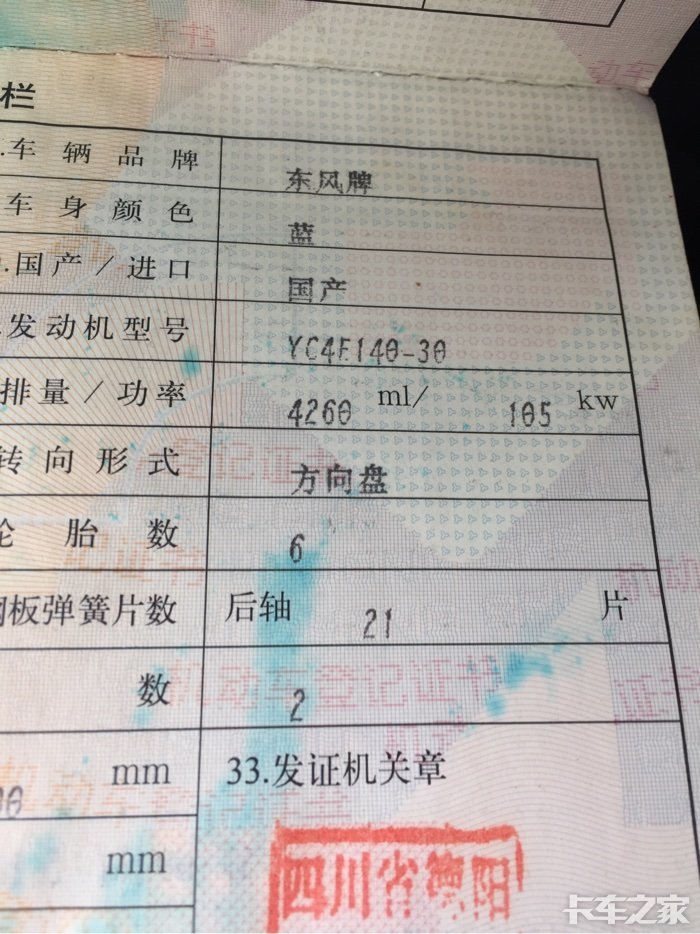 栏
.车辆品牌 东风牌
车身颜色 蓝
.国产/进口 国产
.发动机型号 YC4E140-30
排量/功率 4260 ml/ 105 kw
转向形式 方向盘
轮胎数 6
钢板弹簧片数 后轴 21 片
数 2
mm 33.发证机关章
mm
四川省德阳
卡车之家